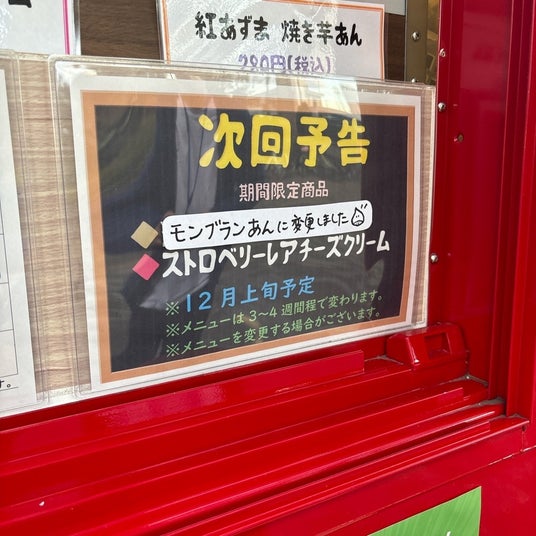 紅あずま 焼き芋あん
280円(税込)
次回予告
期間限定商品
モンブランあんに変更しました
ストロベリーレアチーズクリーム
※12月上旬予定
※メニューは3~4週間程で変わります。
※メニューを変更する場合がございます。
す。